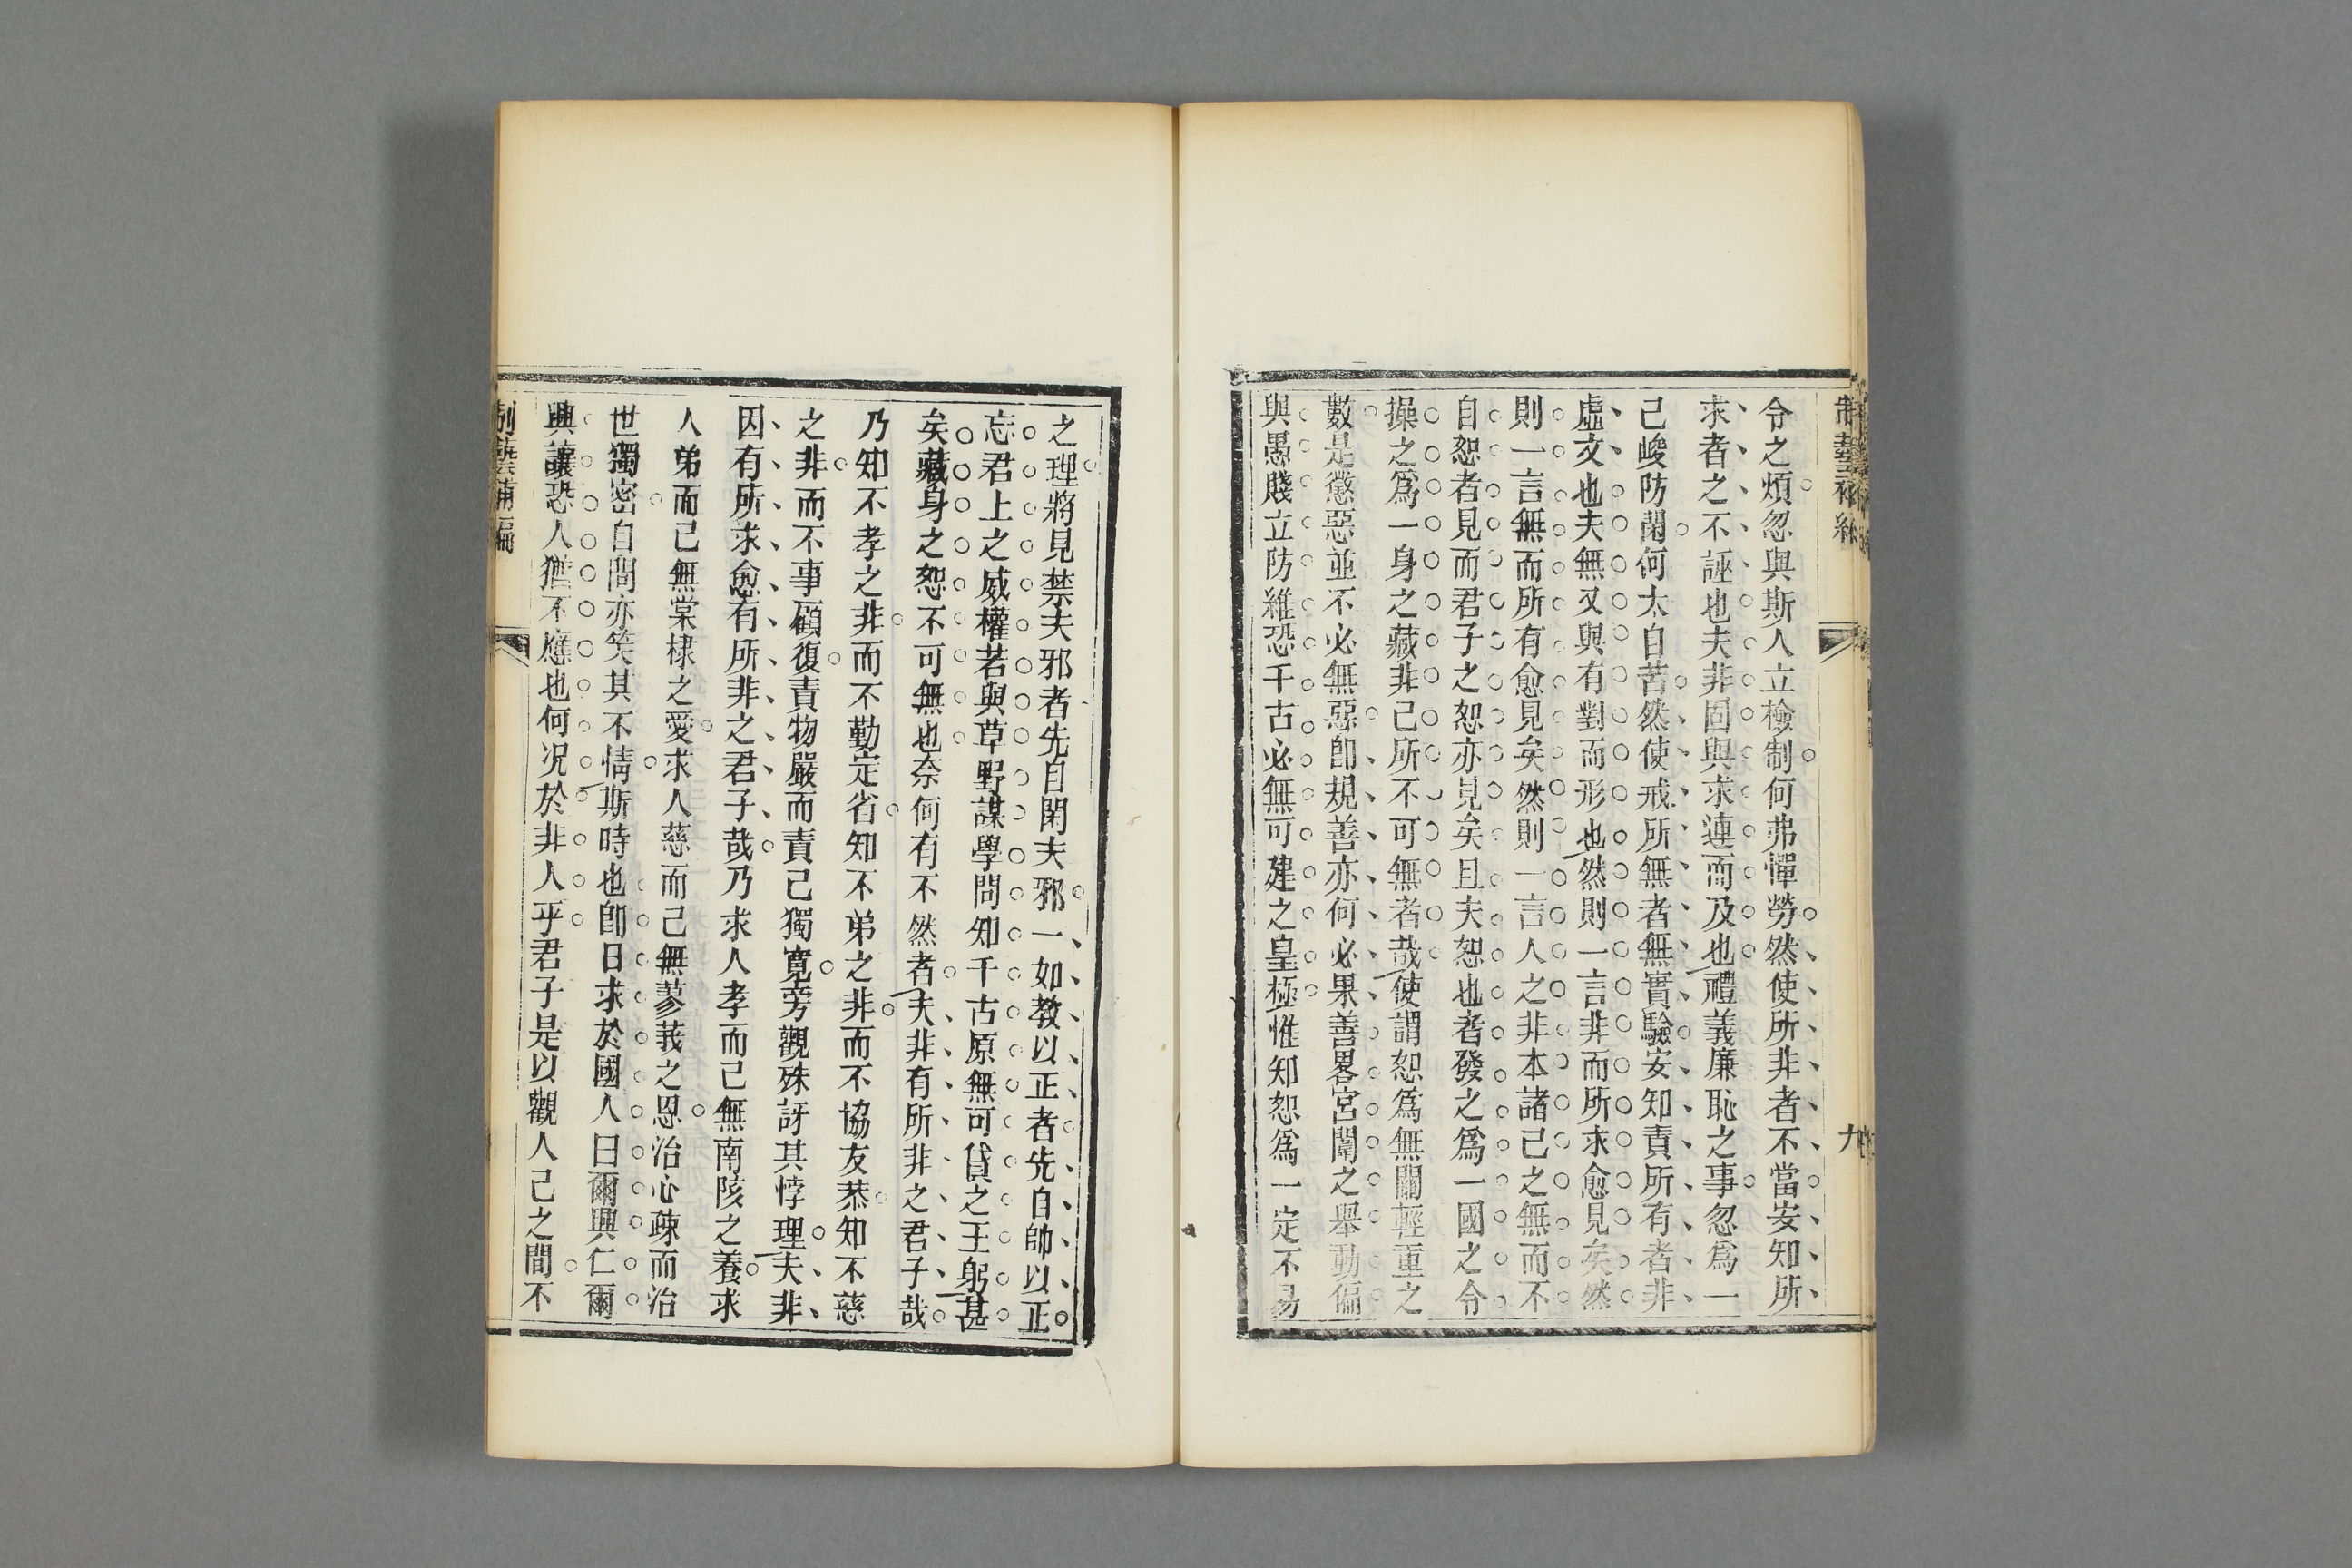 令之煩忽與斯人立檢制何弗憚勞然使所非者不當安知所
求者之不誣也夫非固與求連而及也禮義廉恥之事忽爲一
己峻防閑何太自苦然使戒所無者無實驗安知責所有者非
虛文也夫無又與有對而形也然則一言非而所求愈見矣然
則一言無而所有愈見矣然則一言人之非本諸己之無而不
自恕者見而君子之恕亦見矣且夫恕也者發之爲一國之令
操之爲一身之藏非己所不可無者哉使謂恕爲無關輕重之
數是懲惡並不必無惡卽規善亦何必果善畧宮闈之舉動偏
與愚賤立防維恐千古必無可建之皇極惟知恕爲一定不易
之理將見禁夫邪者先自閑夫邪一如教以正者先自帥以正
忘君上之威權若與草野謀學問知千古原無可貸之王躬甚
矣藏身之恕不可無也奈何有不然者夫非有所非之君子哉
乃知不孝之非而不勤定省知不弟之非而不協友恭知不慈
之非而不事顧復責物嚴而責己獨寬旁觀殊訝其悖理夫非
因有所求愈有所非之君子哉乃求人孝而己無南陔之養求
人弟而己無棠棣之愛求人慈而己無蓼莪之恩治心疎而治
世獨密自問亦笑其不情斯時也卽日求於國人曰爾興仁爾
興讓恐人猶不應也何况於非人乎君子是以觀人己之間不
制藝補編
九